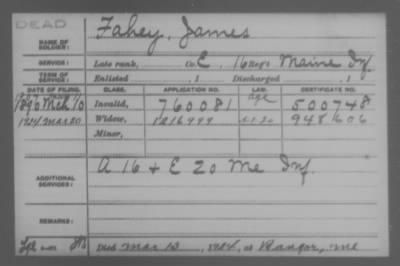 DEAD
NAME OF SOLDIER: Fahey, James
SERVICE: Late rank, Co. E, 16 Reg't Maine Inf.
TERM OF SERVICE: Enlisted , 1 Discharged , 1
DATE OF FILING. CLASS. APPLICATION NO. LAW. CERTIFICATE NO.
1890 Mch 10 Invalid, 760081 age 500748
1924 Mar 20 Widow, 1216999 948606
Minor,
ADDITIONAL SERVICES: A 16 + E 20 Me Inf.
REMARKS:
Died Mar 13, 1924, at Bangor, Me